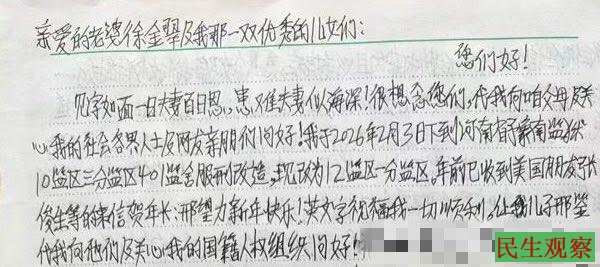 亲爱的老婆徐金翠及我那一双优秀的儿女们：
您们好！
见字如面一日夫妻百日恩，患难夫妻似海深！很想念您们，代我向咱父母及关
心我的社会各界人士及网友亲朋们问好！我于2026年2月3日下到河南省豫南监狱
10监区三分监区401监舍服刑改造，现改为12监区一分监区。年前已收到美国朋友
俊生等的来信贺年卡，邢望力新年快乐！英文字祝福我一切顺利，让我儿子邢鉴
代我向他们及关心我的国籍人权组织问好！
民生观察